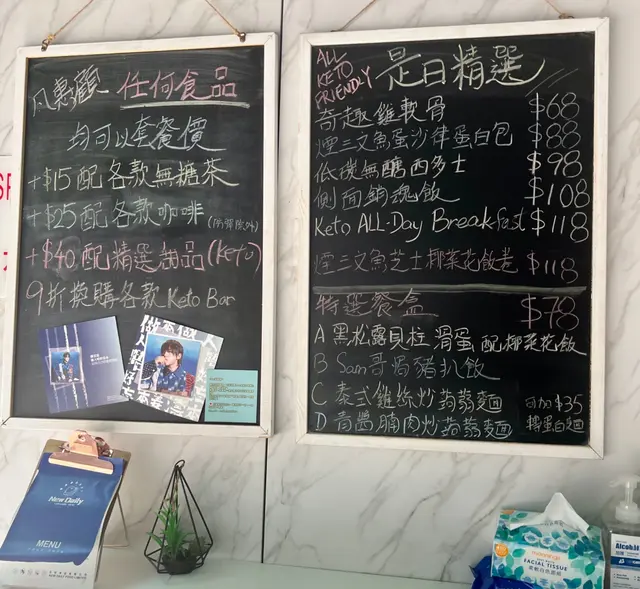 凡惠顧 任何食品
均可以套餐價
+$15配各款無糖茶
+$25配各款咖啡
+$40配精選甜品(Keto)
9折換購各款Keto Bar
ALL KETO FRIENDLY 是日精選
奇趣雞軟骨 $68
煙三文魚蛋沙律蛋白包 $88
低碳無醣西多士 $98
側面銷魂飯 $108
Keto ALL-Day Breakfast $118
煙三文魚芝士椰菜花飯卷 $118
特選餐盒 $78
A 黑松露貝柱滑蛋配椰菜花飯
B Sam哥焗豬扒飯
C 泰式雞絲炒蒟蒻麵
D 青醬腩肉炒蒟蒻麵
另加$35
轉蛋白麵
New Daily
MENU
FACIAL TISSUE